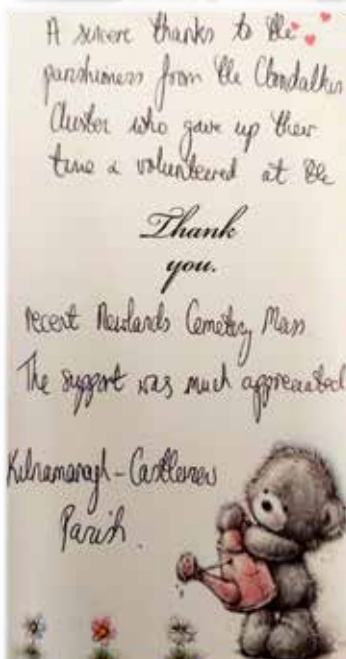 A sincere thanks to the
parishioners from the Clondalkin
Cluster who gave up their
time & volunteered at the
Thank
you.
recent Newlands Cemetery Mass
The support was much appreciated
Kilnamanagh-Castleview
Parish.